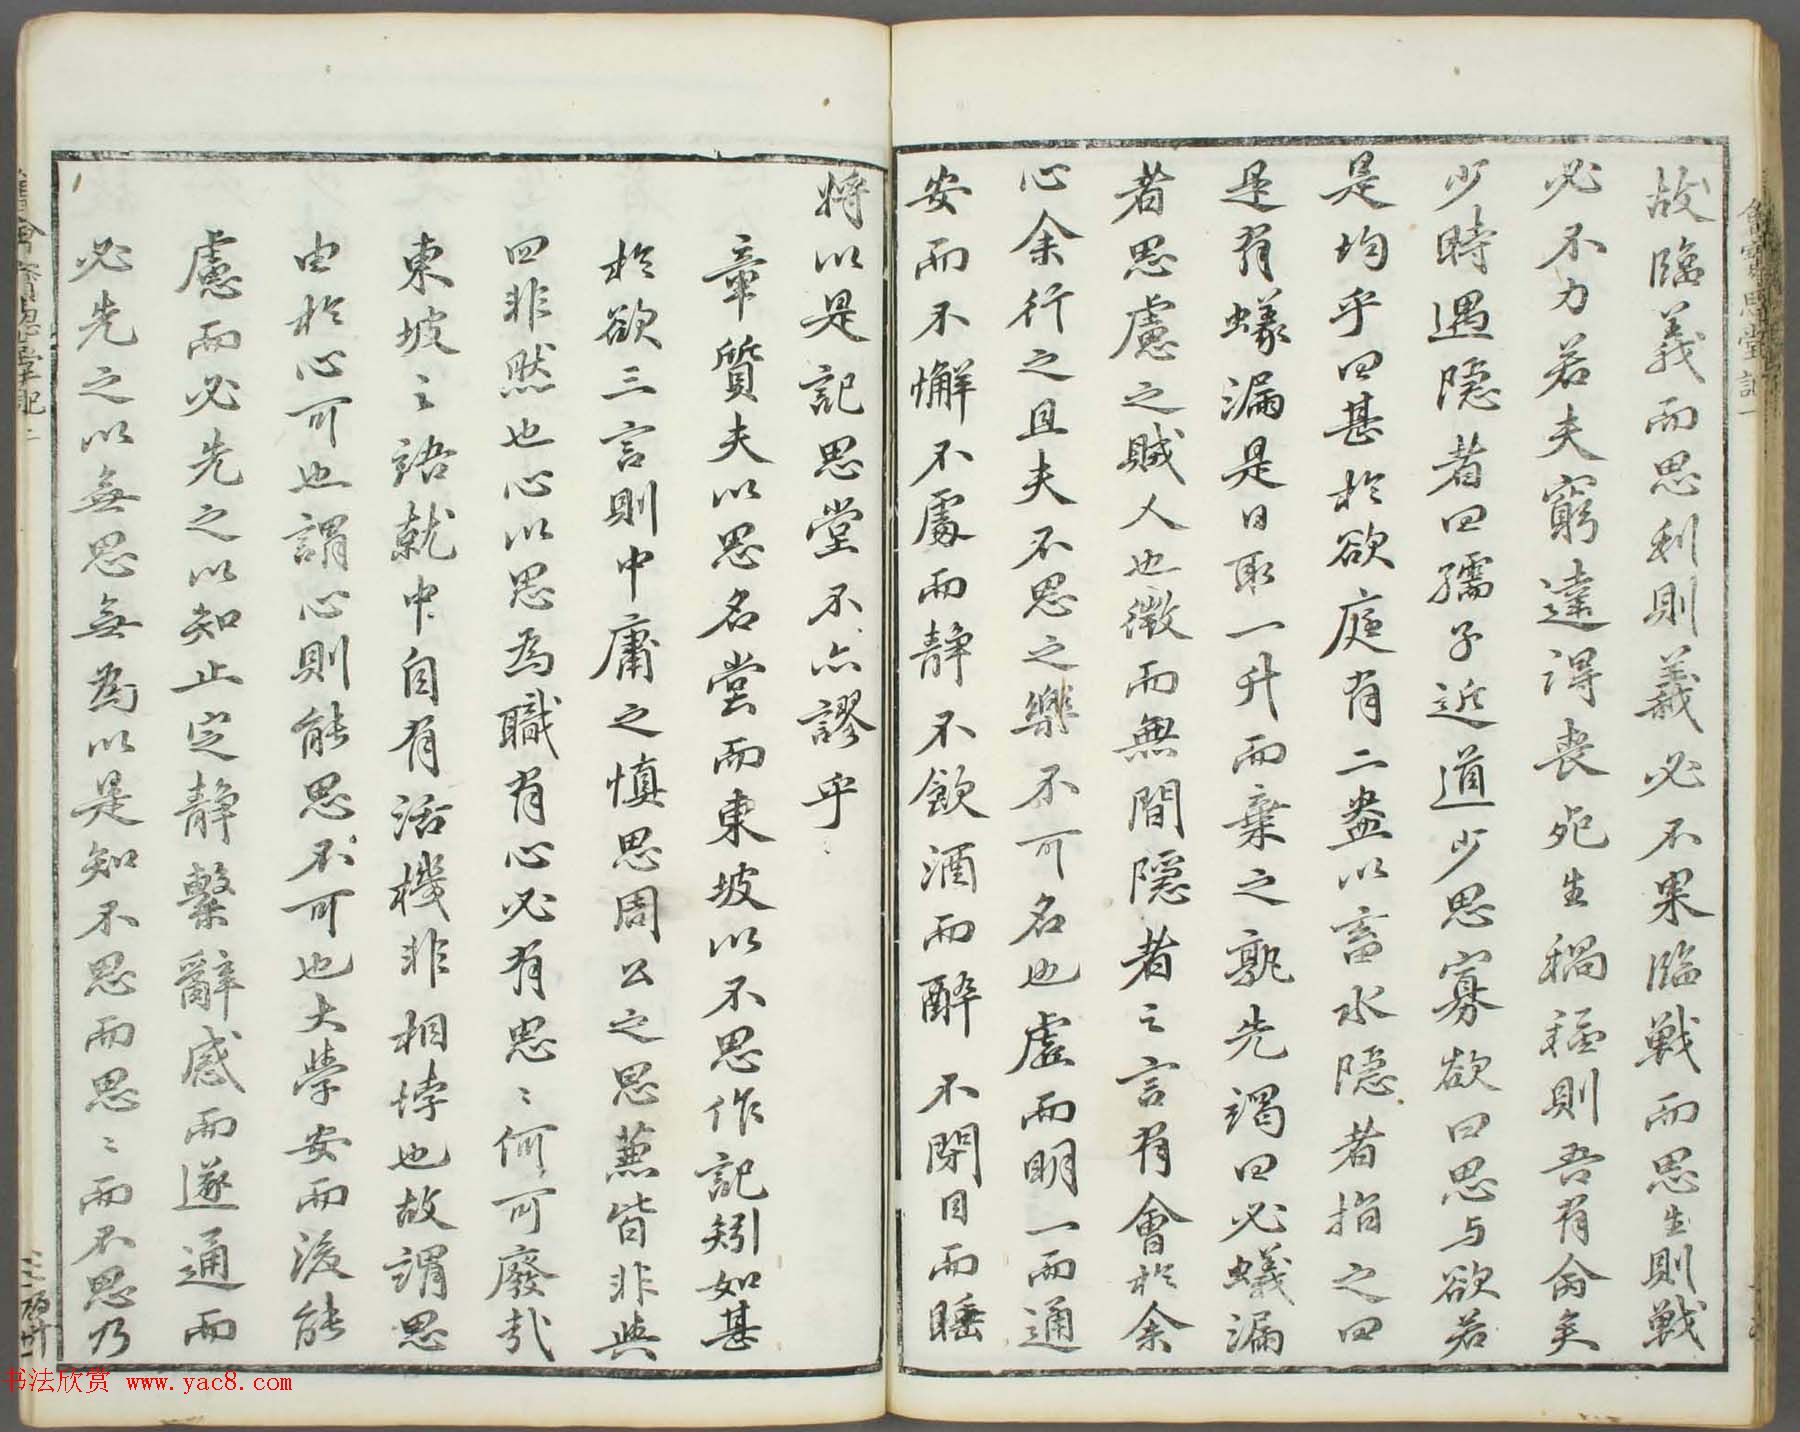 故臨義而思利則義必不果臨戰而思生則戰
必不力若夫窮達得喪死生禍福則吾有命矣
少時遇隱者曰孺子近道少思寡欲曰思与欲若
是均乎曰甚於欲庭有二盎以畜水隱者指之曰
是有蟻漏是日取一升而棄之孰先竭曰必蟻漏
者思慮之賊人也微而無間隱者之言有會於余
心余行之且夫不思之樂不可名也虛而明一而通
安而不懈不處而静不飲酒而醉不閉目而睡
將以是記思堂不亦謬乎
章質夫以思名堂而東坡以不思作記矧如甚
於欲三言則中庸之慎思周公之思蕙皆非與
四非然也心以思為職有心必有思〻何可廢哉
東坡之語就中自有活機非相悖也故謂思
由於心可也謂心則能思不可也大學安而後能
慮而必先之以知止定静繫辭感而遂通而
必先之以無思無為以是知不思而思〻而不思乃
書法欣賞 www.yac8.com